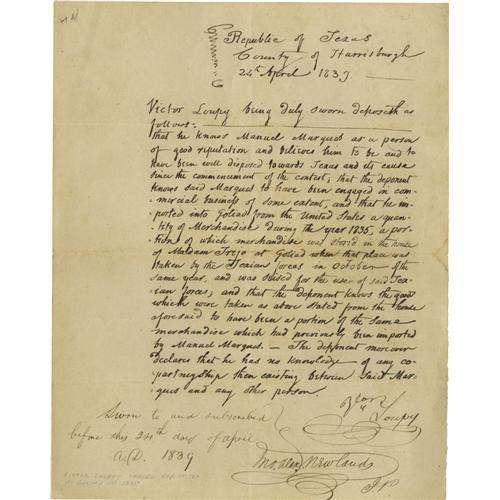 Republic of Texas
County of Harrisburgh
24th April 1839.
Victor Loupy being duly sworn deposeth as
follows:
that he knows Manuel Marques as a person
of good reputation and believes him to be and to
have been well disposed towards Texas and its cause
since the commencement of the contest; that the deponent
knows said Marques to have been engaged in com-
mercial business of some extent, and that he im-
ported into Goliad from the United States a quan-
tity of Merchandise during the year 1835, a por-
tion of which merchandise was stored in the house
of Madam Trejo at Goliad when that place was
taken by the Texian forces in October of the
same year, and was seised for the use of said Tex-
ian forces; and that the deponent knows the good
which were taken as above stated from the house
aforesaid to have been a portion of the same
merchandise which had previously been imported
by Manuel Marques. — The deponent moreover
declares that he has no knowledge of any co-
partnership then existing between said Mar-
ques and any other person.
Loupy
Sworn to and subscribed
before this 24th day of april
A.D. 1839
Jno. Alex. Newlands
J.P.